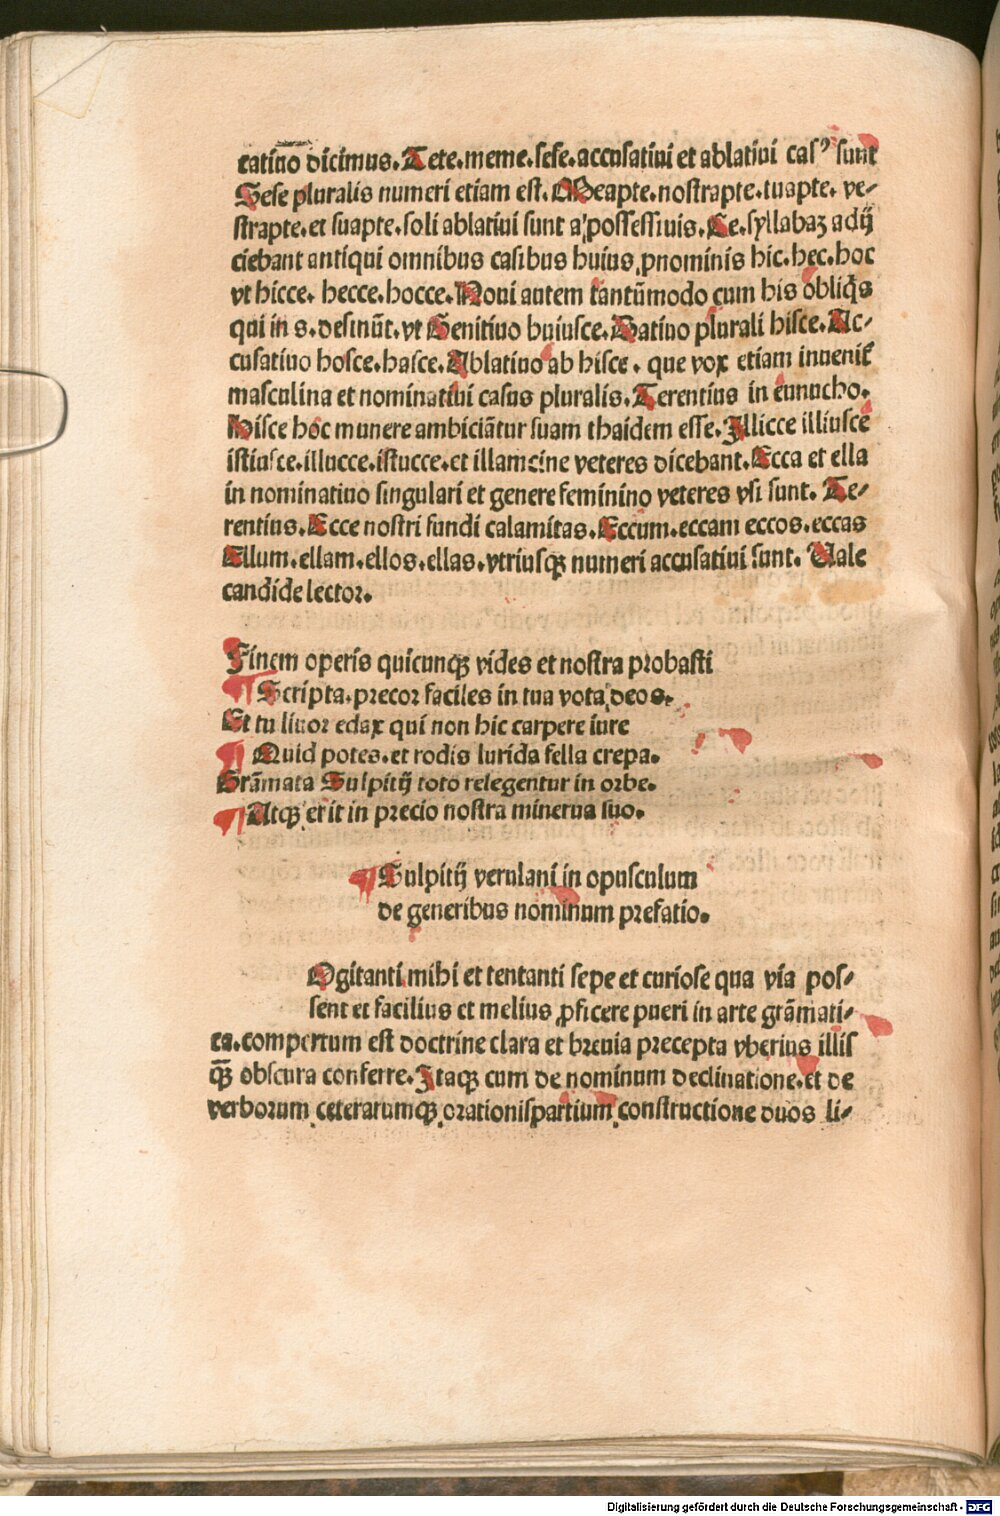 catiuo dicimus. Tete. meme. sese. accusatiui et ablatiui casꝰ sunt
Sese pluralis numeri etiam est. Meapte. nostrapte. tuapte. ve⸗
strapte. et suapte. soli ablatiui sunt a possessiuis. Ce. syllabaꝫ adij
ciebant antiqui omnibus casibus huius ꝓnominis hic. hec. hoc
vt hicce. hecce. hocce. Noui autem tantūmodo cum his obliq̄s
qui in s. desinūt. vt Genitiuo huiusce. Datiuo plurali hisce. Ac⸗
cusatiuo hosce. hasce. Ablatiuo ab hisce. que vox etiam inuenit̄
masculina et nominatiui casus pluralis. Terentius in eunucho.
Hisce hoc munere ambiciātur suam thaidem esse. Illicce illiusce
istiusce. illucce. istucce. et illamcine veteres dicebant. Ecca et ella
in nominatiuo singulari et genere feminino veteres vsi sunt. Te⸗
rentius. Ecce nostri fundi calamitas. Eccum. eccam eccos. eccas
Ellum. ellam. ellos. ellas. vtriusqꝫ numeri accusatiui sunt. Vale
candide lector.
Finem operis quicunqꝫ vides et nostra probasti
Scripta. precor faciles in tua vota deos.
Et tu liuor edax qui non hic carpere iure
Quid potes. et rodis lurida fella crepa.
Grāmata Sulpitij toto relegentur in orbe.
Atqꝫ erit in precio nostra minerua suo.
Sulpitij verulani in opusculum
de generibus nominum prefatio.
Ogitanti mihi et tentanti sepe et curiose qua via pos⸗
sent et facilius et melius ꝓficere pueri in arte grāmati⸗
ca. compertum est doctrine clara et breuia precepta vberius illis
qꝫ̄ obscura conferre. Itaqꝫ cum de nominum declinatione. et de
verborum ceterarumqꝫ orationis partium constructione duos li⸗
Digitalisierung gefördert durch die Deutsche Forschungsgemeinschaft - DFG